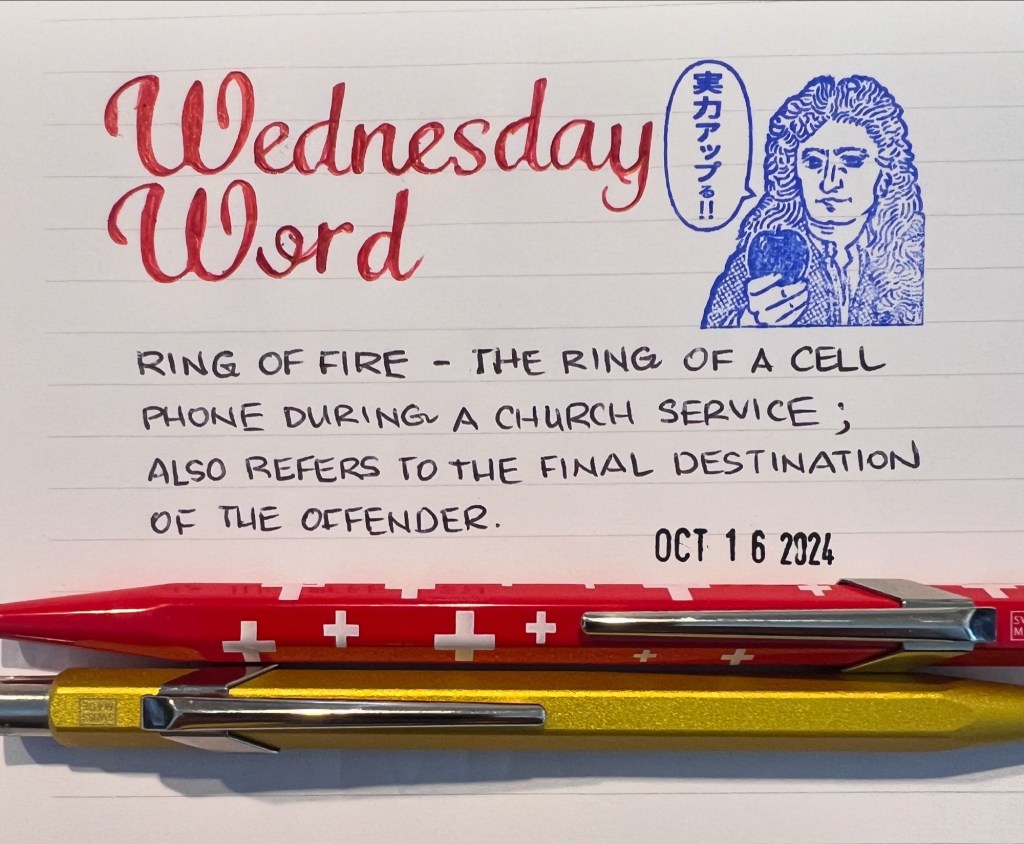 Wednesday
Word
実力アップる!!
RING OF FIRE - THE RING OF A CELL
PHONE DURING A CHURCH SERVICE ;
ALSO REFERS TO THE FINAL DESTINATION
OF THE OFFENDER.
OCT 16 2024
SWISS
MADE